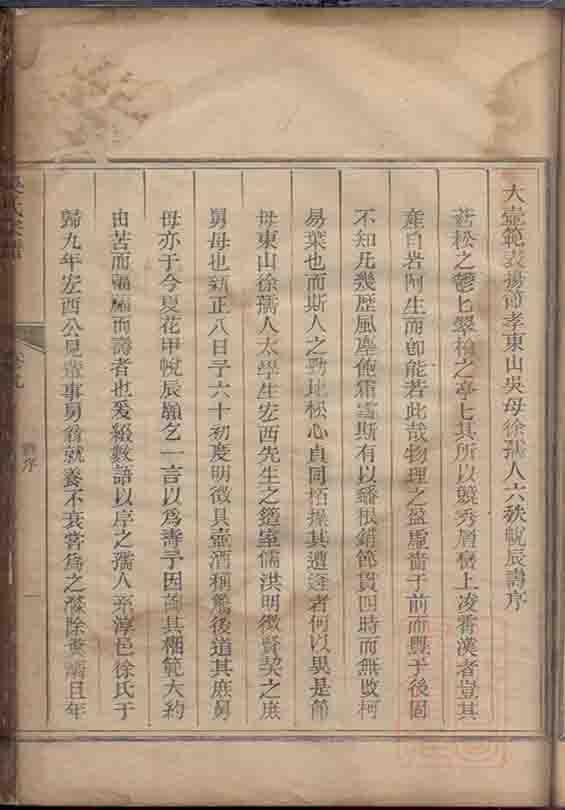 大壼範表揚節孝東山吳母徐孺人六秩帨辰壽序
蒼松之鬱匕翠柏之亭匕其所以競秀層巒上凌霄漢者豈其
產自岩阿生而卽能若此哉物理之盈虛嗇于前而豐于後固
不知凡幾歷風塵飽霜雪斯有以蟠根錯節貫四時而無改柯
易葉也而斯人之勁比松心貞同栢操其遭逢者何以異是節
母東山徐孺人太學生宏西先生之簉室儒洪明徵賢契之庶
舅母也新正八日予六十初度明徵具壺酒稱觴後道其庶舅
母亦于今夏花甲帨辰願乞一言以爲壽予因詢其梱範大約
由苦而 而壽者也爰綴數語以序之孺人系淳邑徐氏于
歸九年宏西公見背事舅翁就養不衰嘗爲之滌除糞 且年
吳氏宗譜
卷九
壽序
一